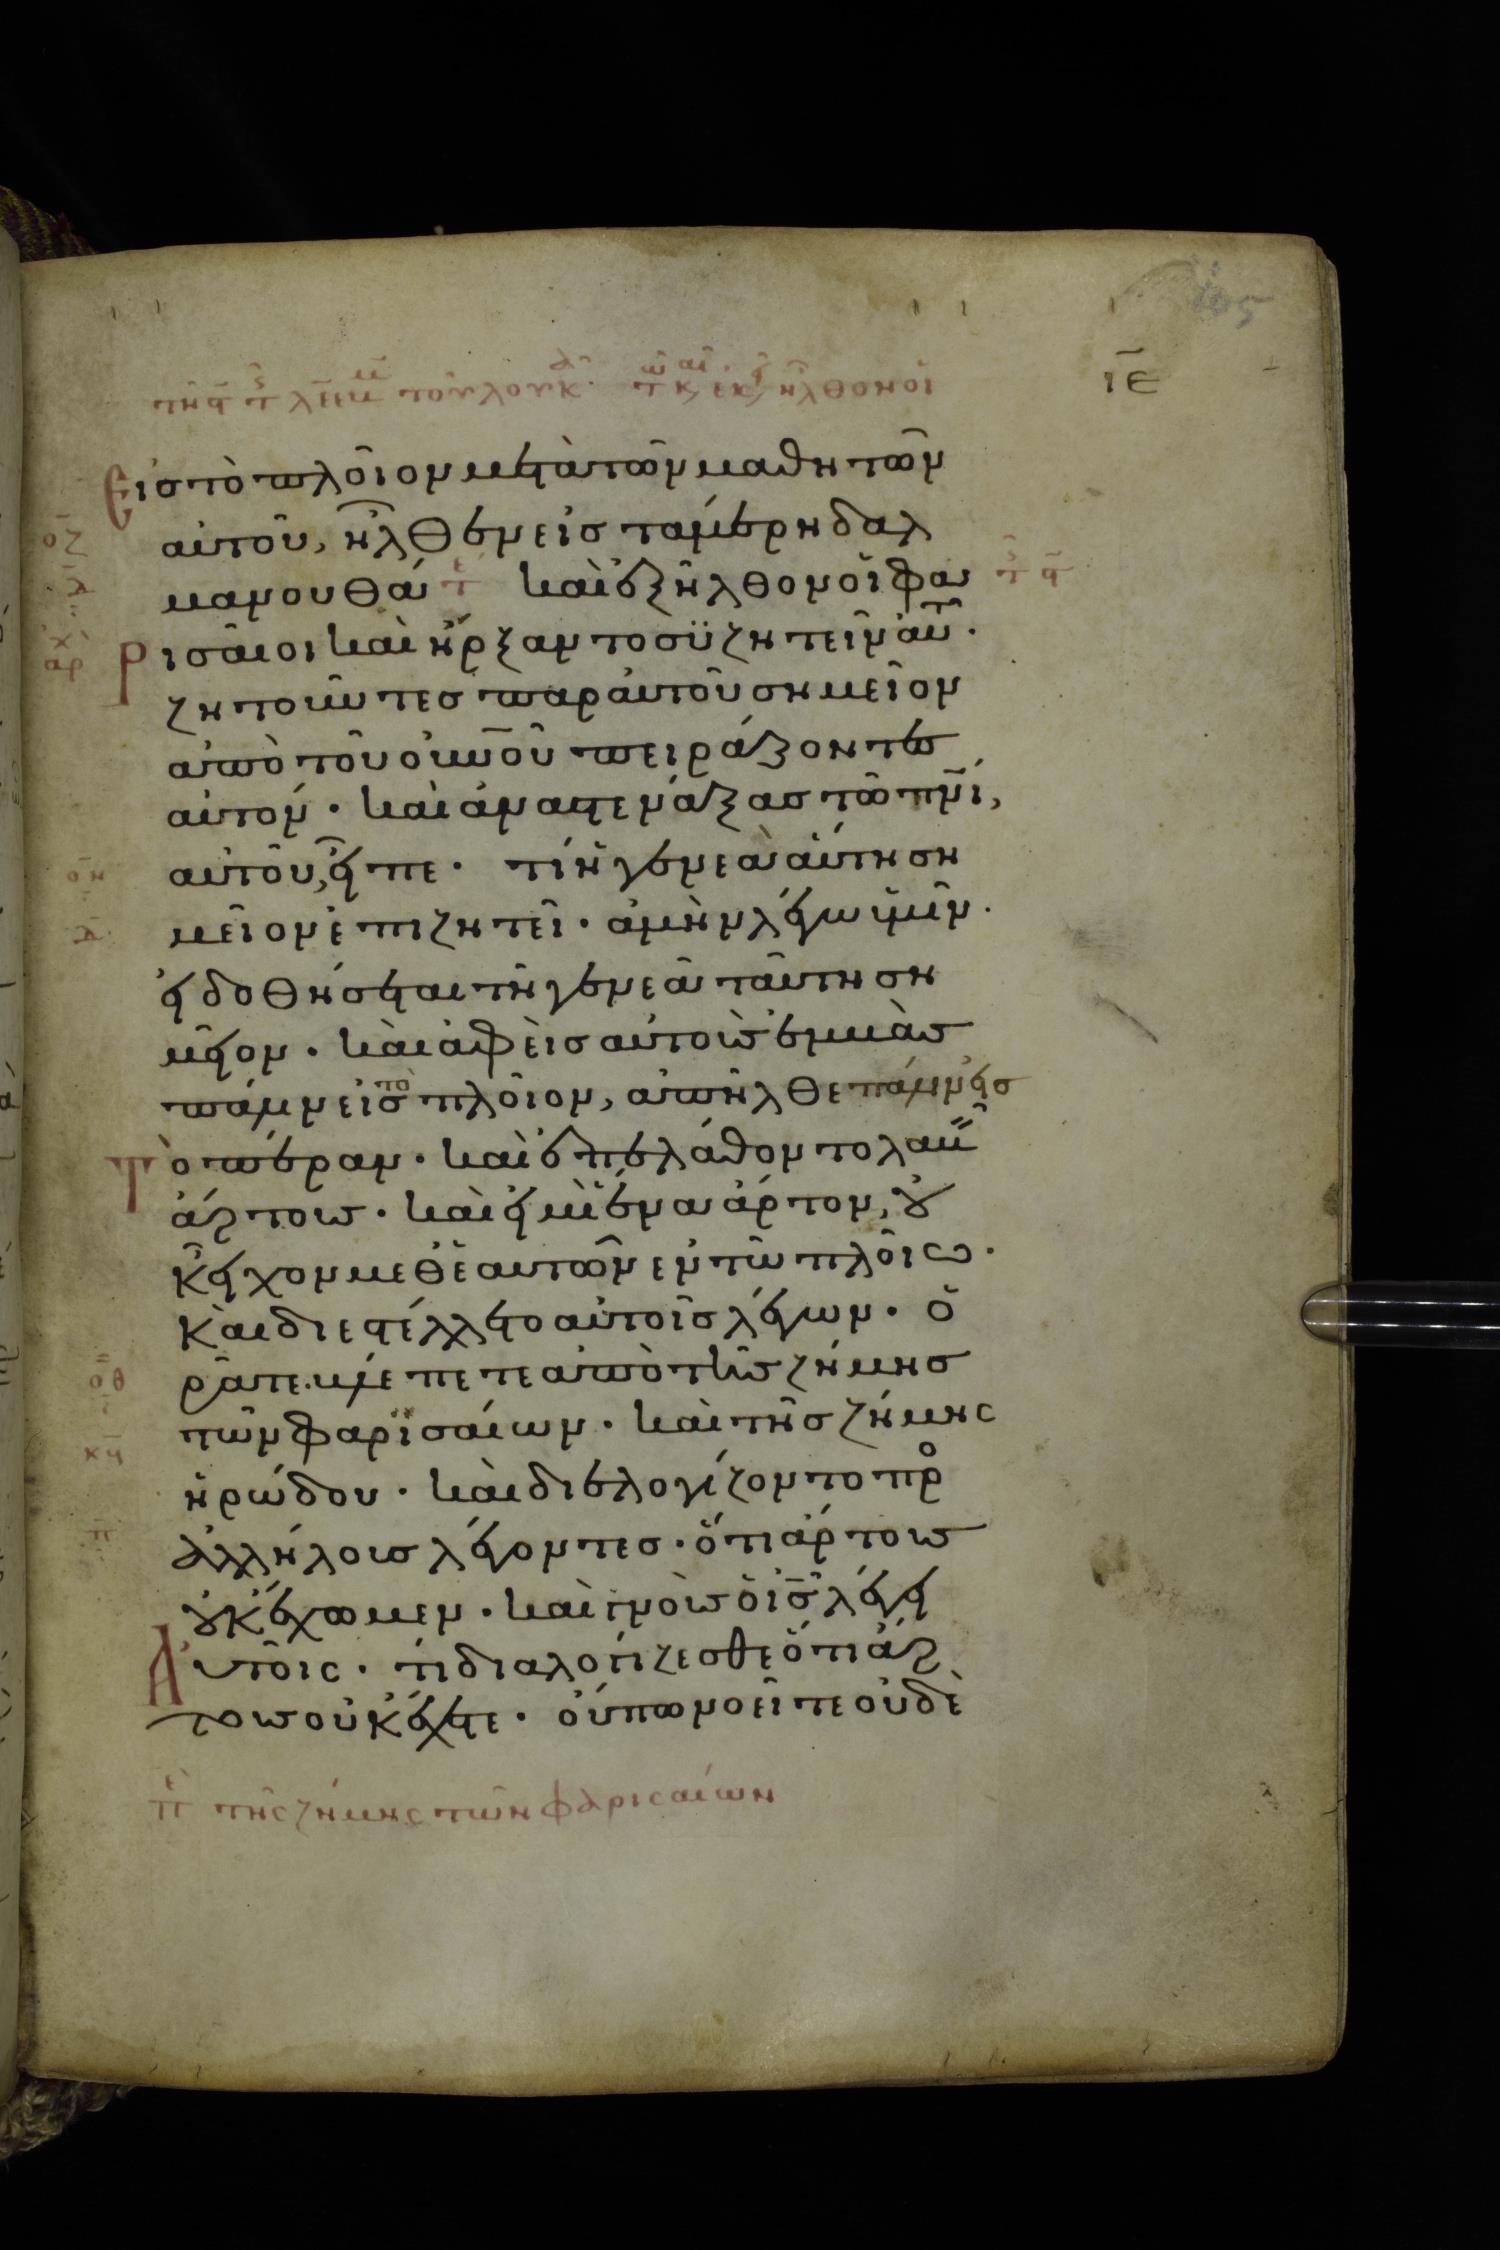 τοῦ λουκ ἦλθον οἱ
ιε
Εἰς τὸ πλοῖον μετὰ τῶν μαθητῶν
αὐτοῦ, ἦλθεν εἰς τὰ μέρη δαλ
μανουθά καὶ ἐξῆλθον οἱ φα
ρισαῖοι καὶ ἤρξαντο συζητεῖν αὐτ·
ζητοῦντες παρ αὐτοῦ σημεῖον
ἀπὸ τοῦ οὐνοῦ πειράζοντες
αὐτόν· καὶ ἀναστενάξας τῶ πνι,
αὐτοῦ, εἶπε· τί ἡ γενεὰ αὕτη ση
μεῖον ἐπιζητεῖ· ἀμὴν λέγω ὑμῖν·
εἰ δοθήσεται τῆ γενεᾶ ταύτη ση
μεῖον· καὶ ἀφεὶς αὐτοὺς ἐμβὰς
πάλιν εἰς τὸ πλοῖον, ἀπῆλθε πάλιν εἰς
Τὸ πέραν· καὶ ἐπελάθοντο λαβεῖν
ἄρτους· καὶ εἰ μὴ ἕνα ἄρτον, οὐ
κ εἶχον μεθ ἑαυτῶν ἐν τῶ πλοίω·
Καὶ διεστέλλετο αὐτοῖς λέγων· ὁ
ρᾶτε· βλέπετε ἀπὸ τῆς ζύμης
τῶν φαρϊσαίων· καὶ τῆς ζύμης
ἡρώδου· καὶ διελογίζοντο πρὸ
ἀλλήλους λέγοντες· ὅτι ἄρτους
οὐκ ἔχωμεν· καὶ γνοὺς ὁ ις λέγει
Αὐτοῖς· τί διαλογίζεσθε ὅτι ἄρ
τους οὐκ ἔχετε· οὔπω νοεῖτε οὐδὲ
τῆς ζύμης τῶν φαρισαίων